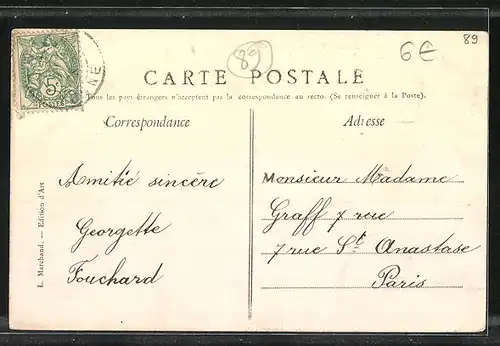 89
89
6€
5
POSTES
NE
CARTE POSTALE
Tous les pays étrangers n'acceptent pas la correspondance au recto. (Se renseigner à la Poste).
Correspondance
Adresse
Amitié sincère
Georgette
Fouchard
Monsieur Madame
Graff 7 rue
7 rue St. Anastase
Paris
L. Marchand. — Edition d'Art